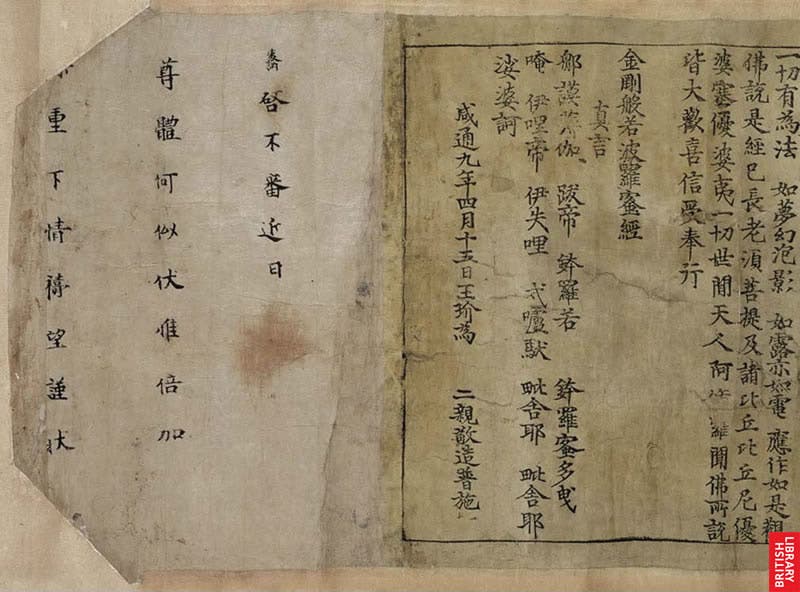 一切有為法 如夢幻泡影 如露亦如電 應作如是觀
佛說是經已長老須菩提及諸比丘比丘尼優
婆塞優婆夷一切世間天人阿羅聞佛所說
皆大歡喜信受奉行
金剛般若波羅蜜經
真言
郍謨薄伽 跋帝 鉢羅若 鉢羅蜜多曳
唵 伊哩帝 伊失哩 式嚧馱 毗舍耶 毗舍耶
娑婆訶
咸通九年四月十五日王玠為 二親敬造普施
啓不審近日
尊體何似伏惟倍加
重下情禱望謹狀
BRITISH
LIBRARY